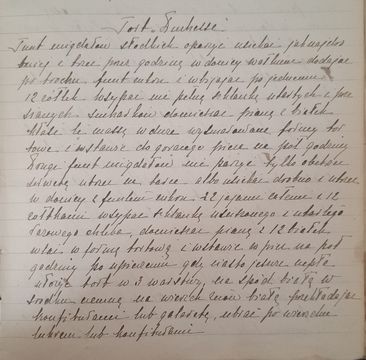 Tort Duchesse
Funt migdałów słodkich oparzyć usiekać jaknajdro
bniej i trzeć przez godzinę w donicy wałkiem dodając
po trochu funt cukru i wbijając po jednemu
12 żółtek wsypać nie pełną szklankę utartych i prze
sianych sucharków domieszać pianę z białek
kłaść tę massę w duże wysmarowane formy tor
towe i wstawić do gorącego pieca na pół godziny
Drugi funt migdałów nie parzyć tylko obetrzeć
serwetą utrzeć na tarce albo usiekać drobno i utrzeć
w donicy z funtem cukru 2 jajami całemi i 12
żółtkami wsypać szklankę ususzonego i utartego
razowego chleba, domieszać pianę z 12 białek
wlać w formę tortową i wstawić w piec na pół
godziny po upieczeniu gdy ciasto jeszcze ciepłe
ułożyć tort w 3 warstwy, na spód białą w
środku ciemną na wierzch znów białą przekładając
konfiturami lub galaretą, ubrać po wierzchu
lukrem lub konfiturami